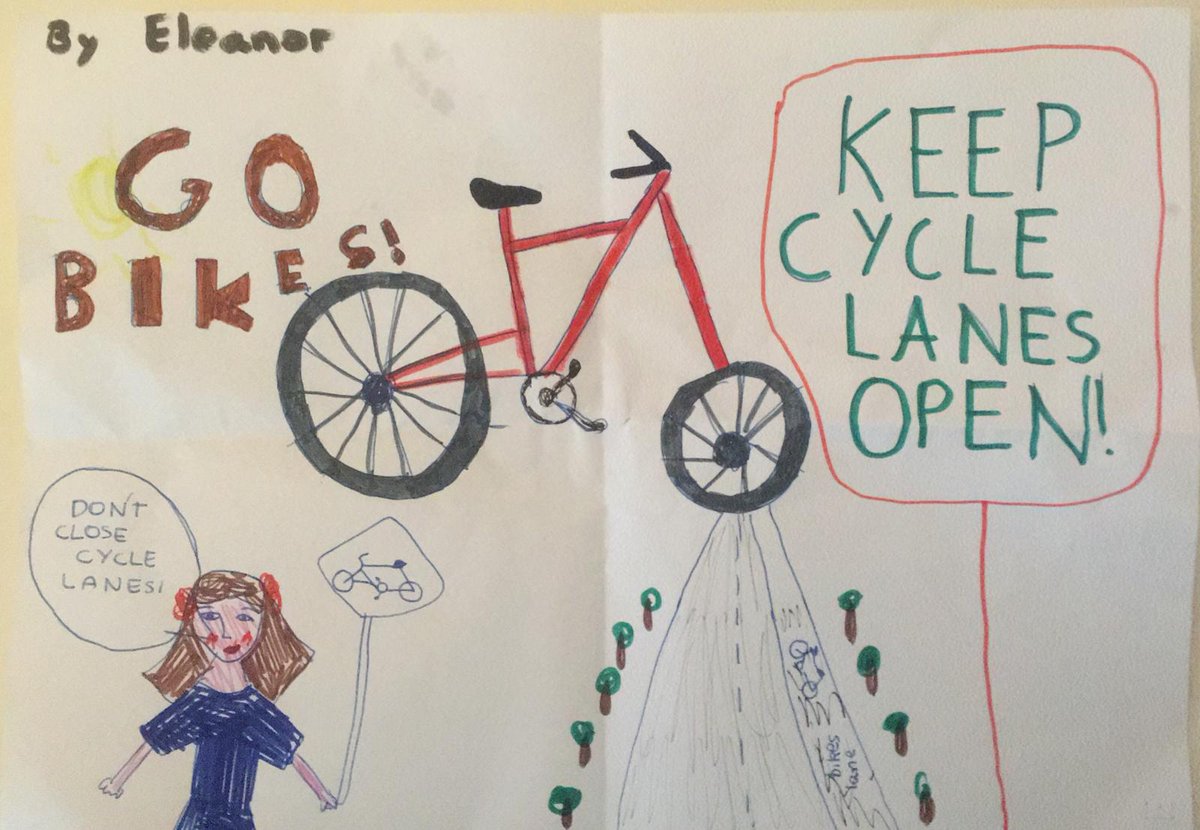 By Eleanor
GO
BIKES!
KEEP
CYCLE
LANES
OPEN!
DON'T
CLOSE
CYCLE
LANES!
bikes
lane